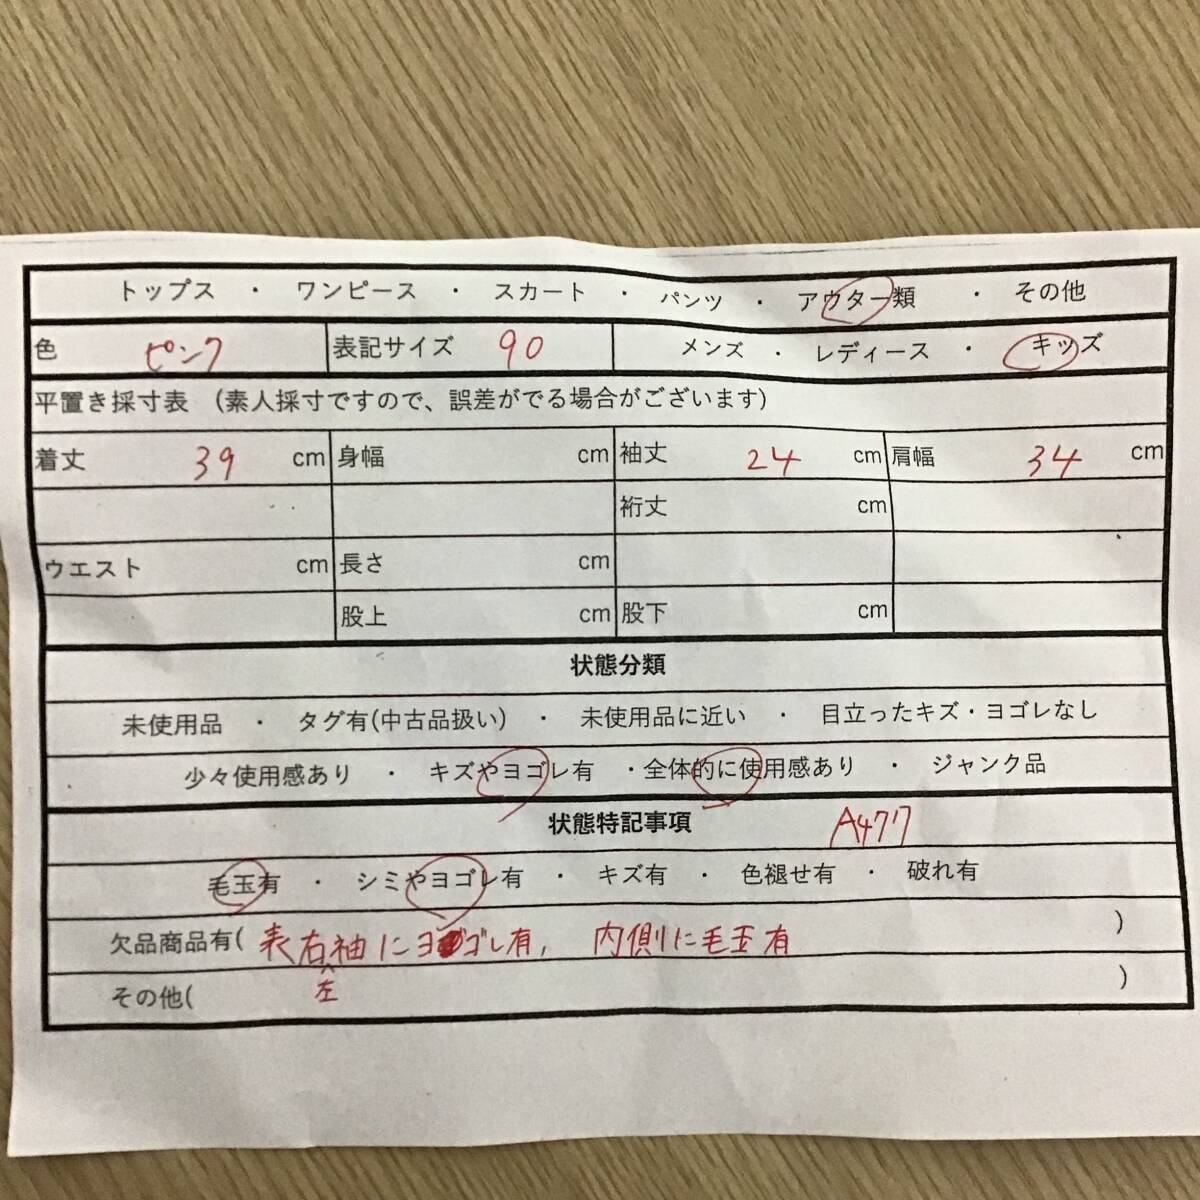 トップス ・ ワンピース ・ スカート ・ パンツ ・ アウター類 ・ その他
色 ピンク 表記サイズ 90 メンズ ・ レディース ・ キッズ
平置き採寸表 (素人採寸ですので、誤差がでる場合がございます)
着丈 39 cm 身幅 cm 袖丈 24 cm 肩幅 34 cm
裄丈 cm
ウエスト cm 長さ cm
股上 cm 股下 cm
状態分類
未使用品 ・ タグ有(中古品扱い) ・ 未使用品に近い ・ 目立ったキズ・ヨゴレなし
少々使用感あり ・ キズやヨゴレ有 ・全体的に使用感あり ・ ジャンク品
状態特記事項 A477
毛玉有 ・ シミやヨゴレ有 ・ キズ有 ・ 色褪せ有 ・ 破れ有
欠品商品有( 表右袖にヨゴレ有, 内側に毛玉有 )
左
その他( )